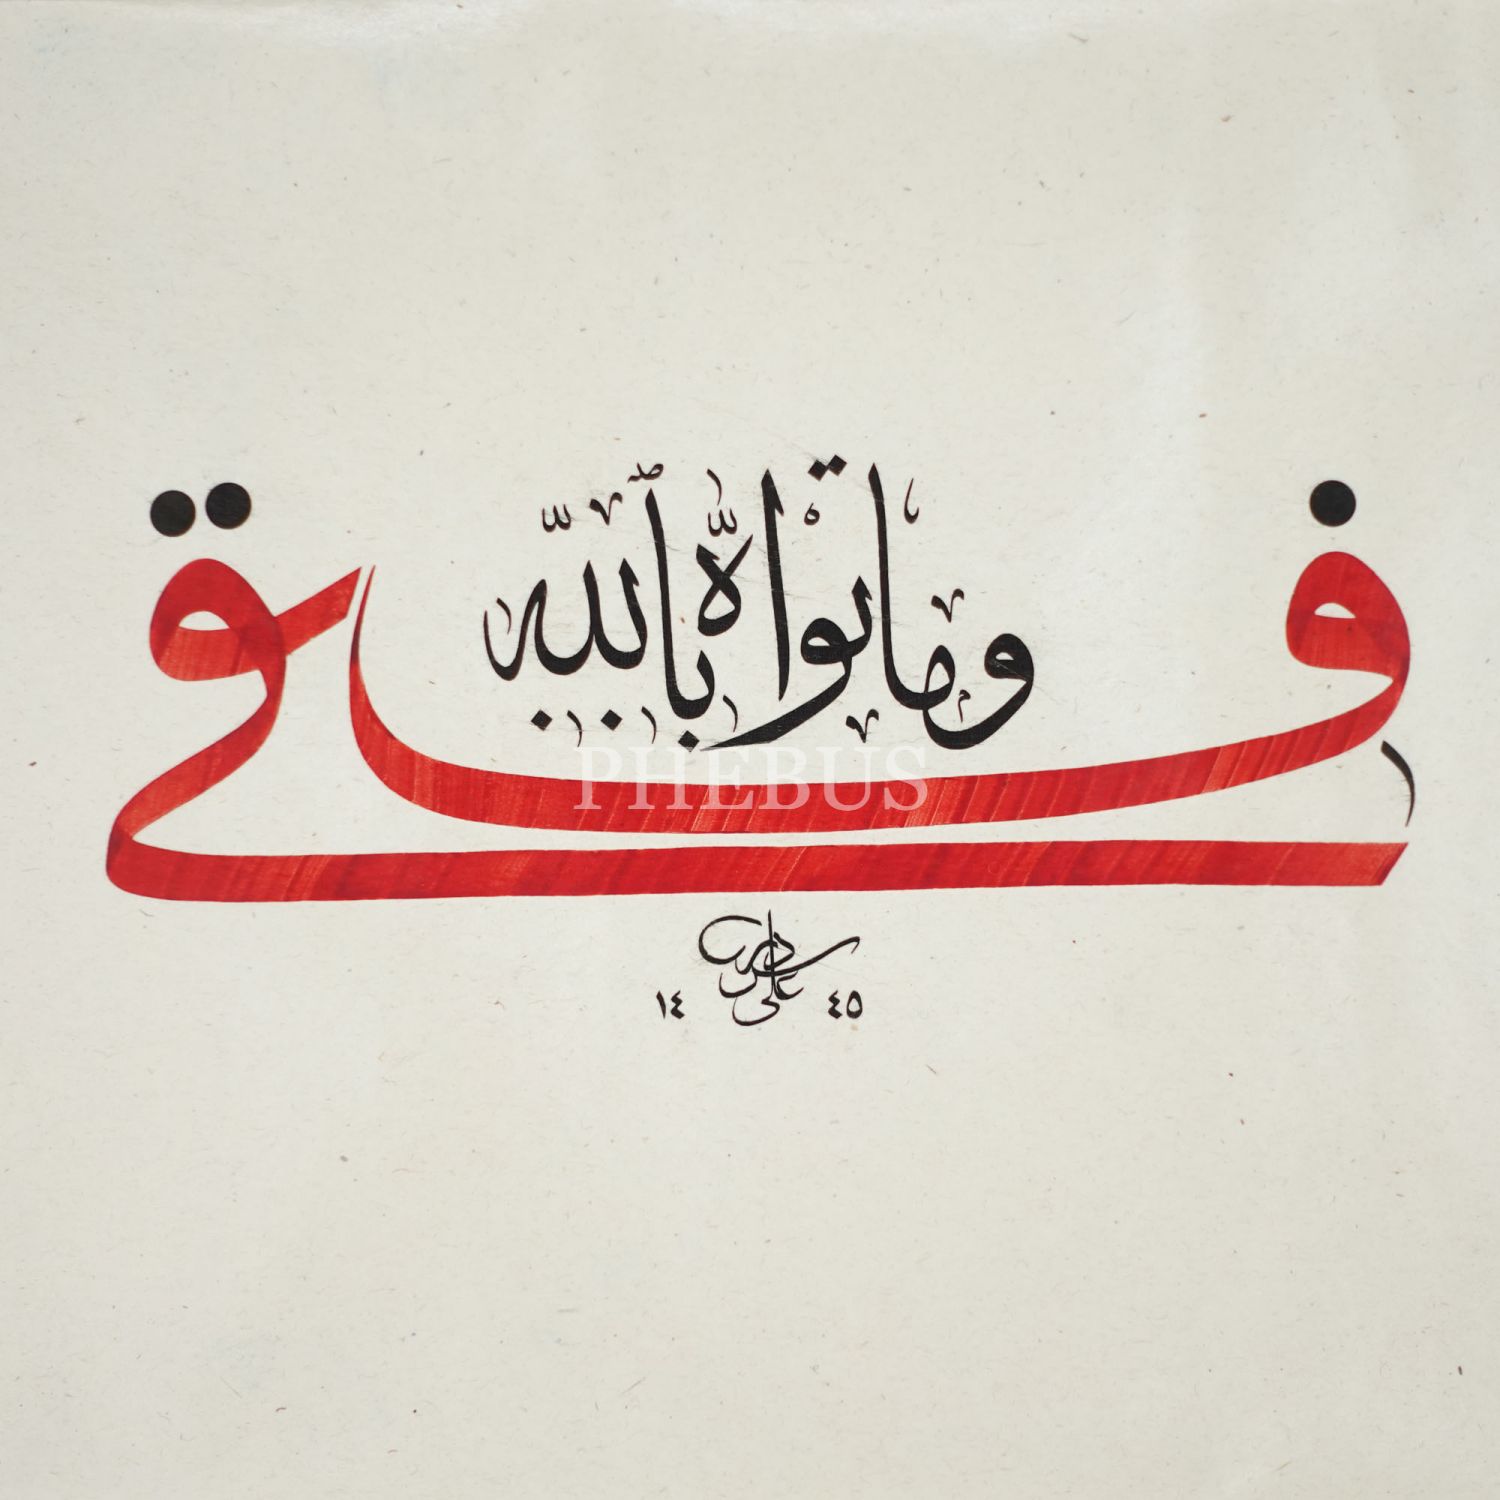 وما توفيقي إلا بالله
PHEBUS
١٤٤٥